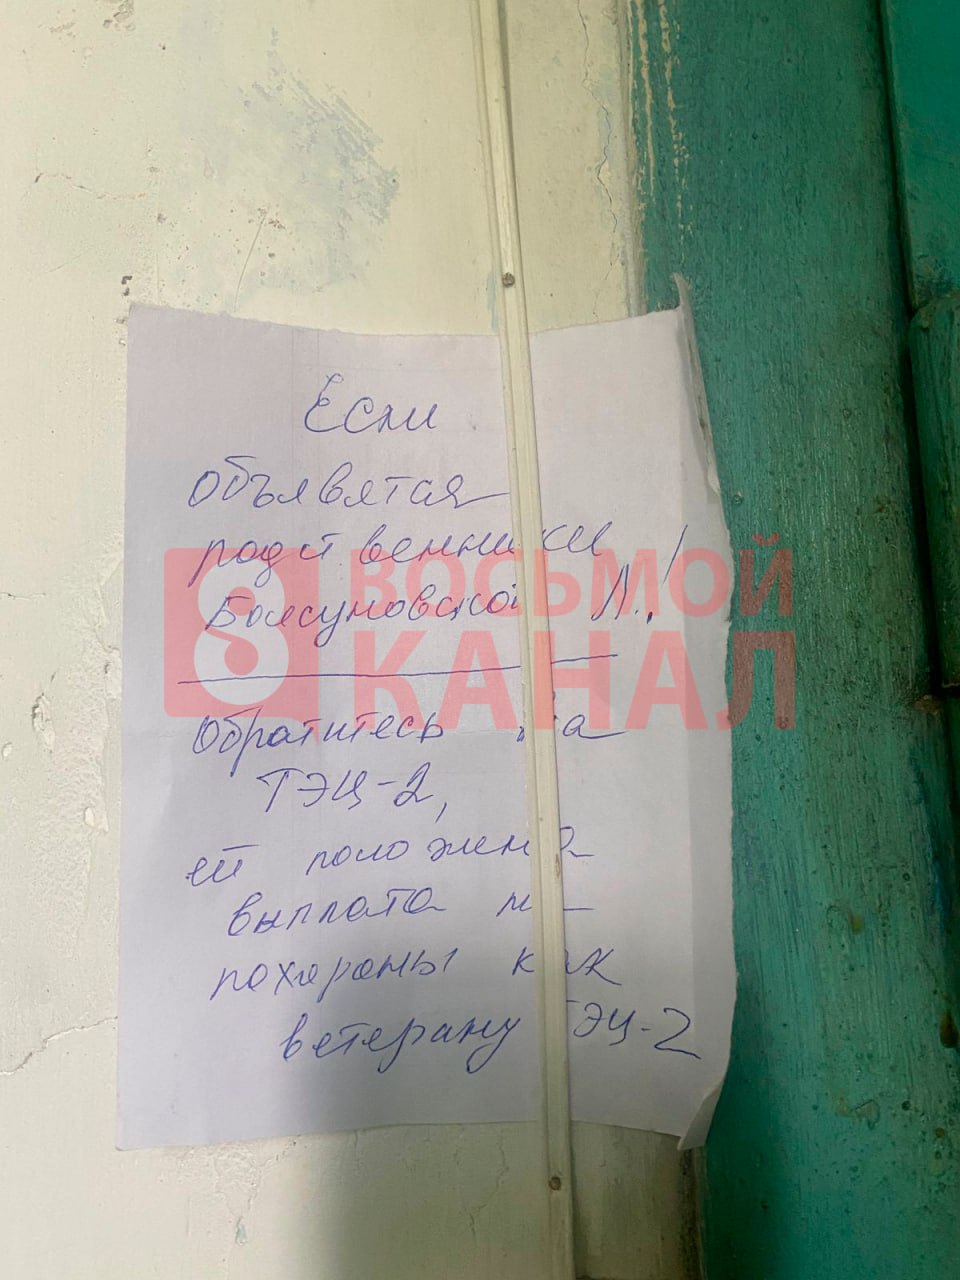 Если
объявятся
родственники
Боясуновской Л.!
Обратитесь на
ТЭЦ-2,
ей положена
выплата на
похороны как
ветерану ТЭЦ-2
8 ВОСЬМОЙ
КАНАЛ